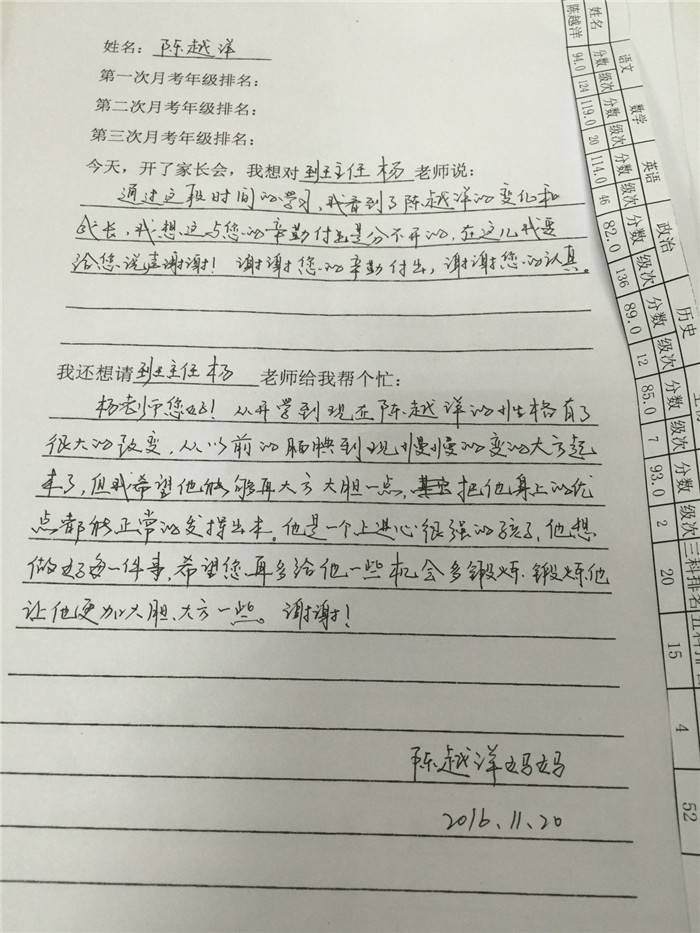 姓名：陈越洋
第一次月考年级排名：
第二次月考年级排名：
第三次月考年级排名：
今天，开了家长会，我想对 班主任 杨 老师说：
通过这段时间的学习，我看到了陈越洋的变化和
成长，我想这与您的辛勤付出是分不开的，在这儿我要
给您说声谢谢！谢谢您的辛勤付出，谢谢您的认真。
我还想请 班主任杨 老师给我帮个忙：
杨老师您好！从开学到现在陈越洋的性格有了
很大的改变，从以前的腼腆到现慢慢的变的大方起
来了，但我希望他能够再大方 大胆一点，把他身上的优
点都能正常的发挥出来。他是一个上进心很强的孩子，他想
做好每一件事，希望您再多给他一些机会多锻炼.锻炼他
让他更加大胆、大方一些。谢谢！
陈越洋妈妈
2016.11.20
姓名 语文 数学 英语 政治 历史
分数 级次 分数 级次 分数 级次 分数 级次 分数 级次 分数 级次 分数 级次 三科排名
陈越洋 94.0 124 119.0 20 114.0 46 82.0 136 89.0 12 85.0 7 93.0 2 20 15 4 52